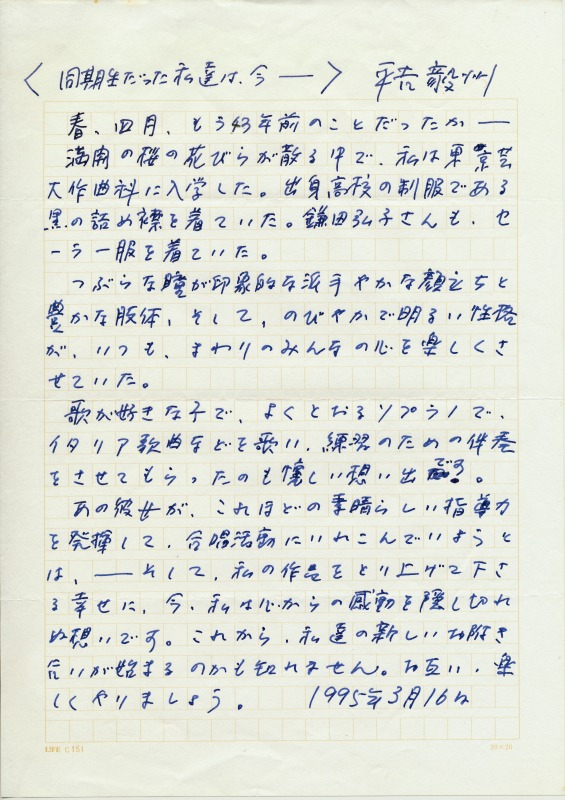 〈同期生だった私達は、今──〉 平吉毅州
春、四月、もう43年前のことだったか──
満開の桜の花びらが散る中で、私は東京芸
大作曲科に入学した。出身高校の制服である
黒の詰め襟を着ていた。鎌田弘子さんも、セ
ーラー服を着ていた。
つぶらな瞳が印象的な派手やかな顔立ちと
豊かな肢体、そして、のびやかで明るい性格
が、いつも、まわりのみんなの心を楽しくさ
せていた。
歌が好きな子で、よくとおるソプラノで、
イタリア歌曲などを歌い、練習のための伴奏
をさせてもらったのも懐しい想い出です。
あの彼女が、これほどの素晴らしい指導力
を発揮して、合唱活動にいれこんでいようと
は、──そして、私の作品をとり上げて下さ
る幸せに、今、私は心からの感動を隠し切れ
ぬ想いです。これから、私達の新しいお附き
合いが始まるのかも知れません。お互い、楽
しくやりましょう。 1995年3月16日
LIFE C151
20×20